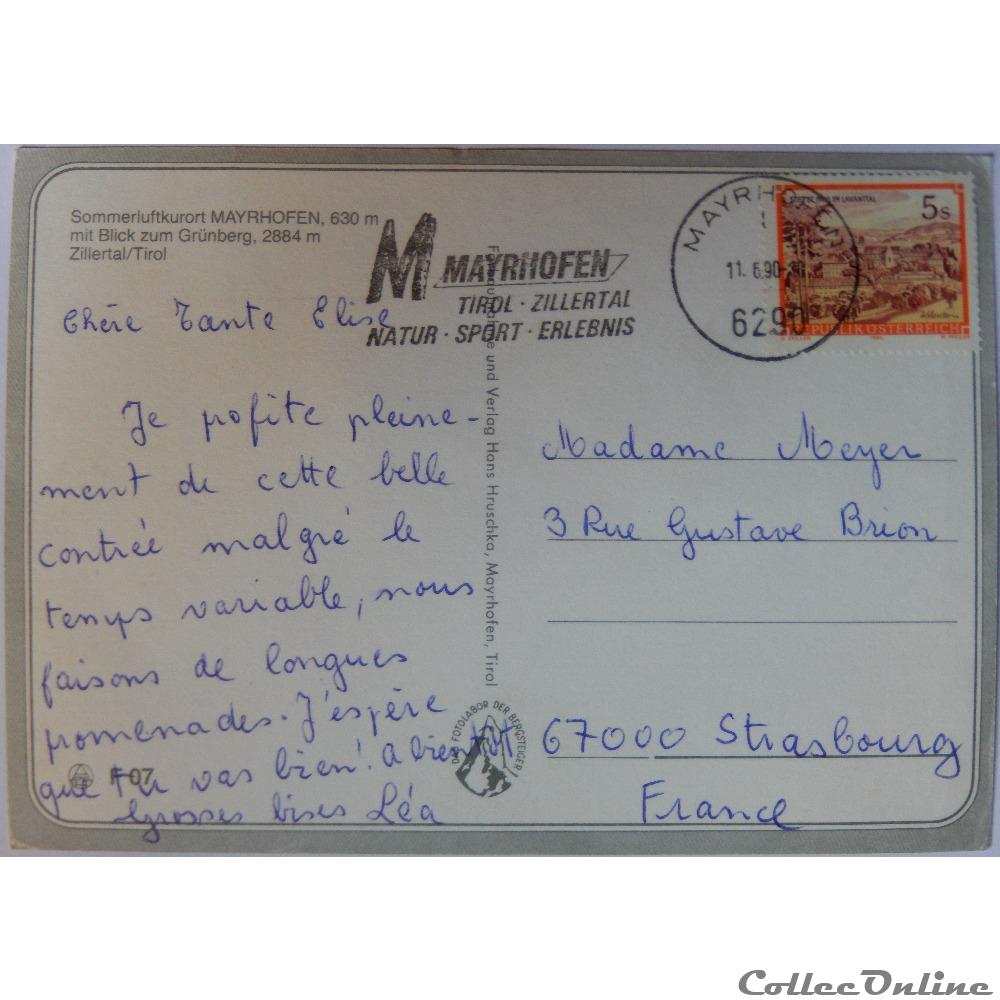 Sommerluftkurort MAYRHOFEN, 630 m
mit Blick zum Grünberg, 2884 m
Zillertal/Tirol
M MAYRHOFEN
TIROL · ZILLERTAL
NATUR · SPORT · ERLEBNIS
MAYRHOFEN
11. 6.90
6290
IM LAVANTTAL
5s
REPUBLIK ÖSTERREICH
Chère Tante Elise
Je pofite pleine-
ment de cette belle
contrée malgré le
temps variable, nous
faisons de longues
promenades. J'espère
que tu vas bien! a bientôt
Grosses bises Léa
F 07
und Verlag Hans Hruschka, Mayrhofen, Tirol
FOTOLABOR DER BERGSTEIGER
Madame Meyer
3 Rue Gustave Brion
67000 Strasbourg
France
CollecOnline